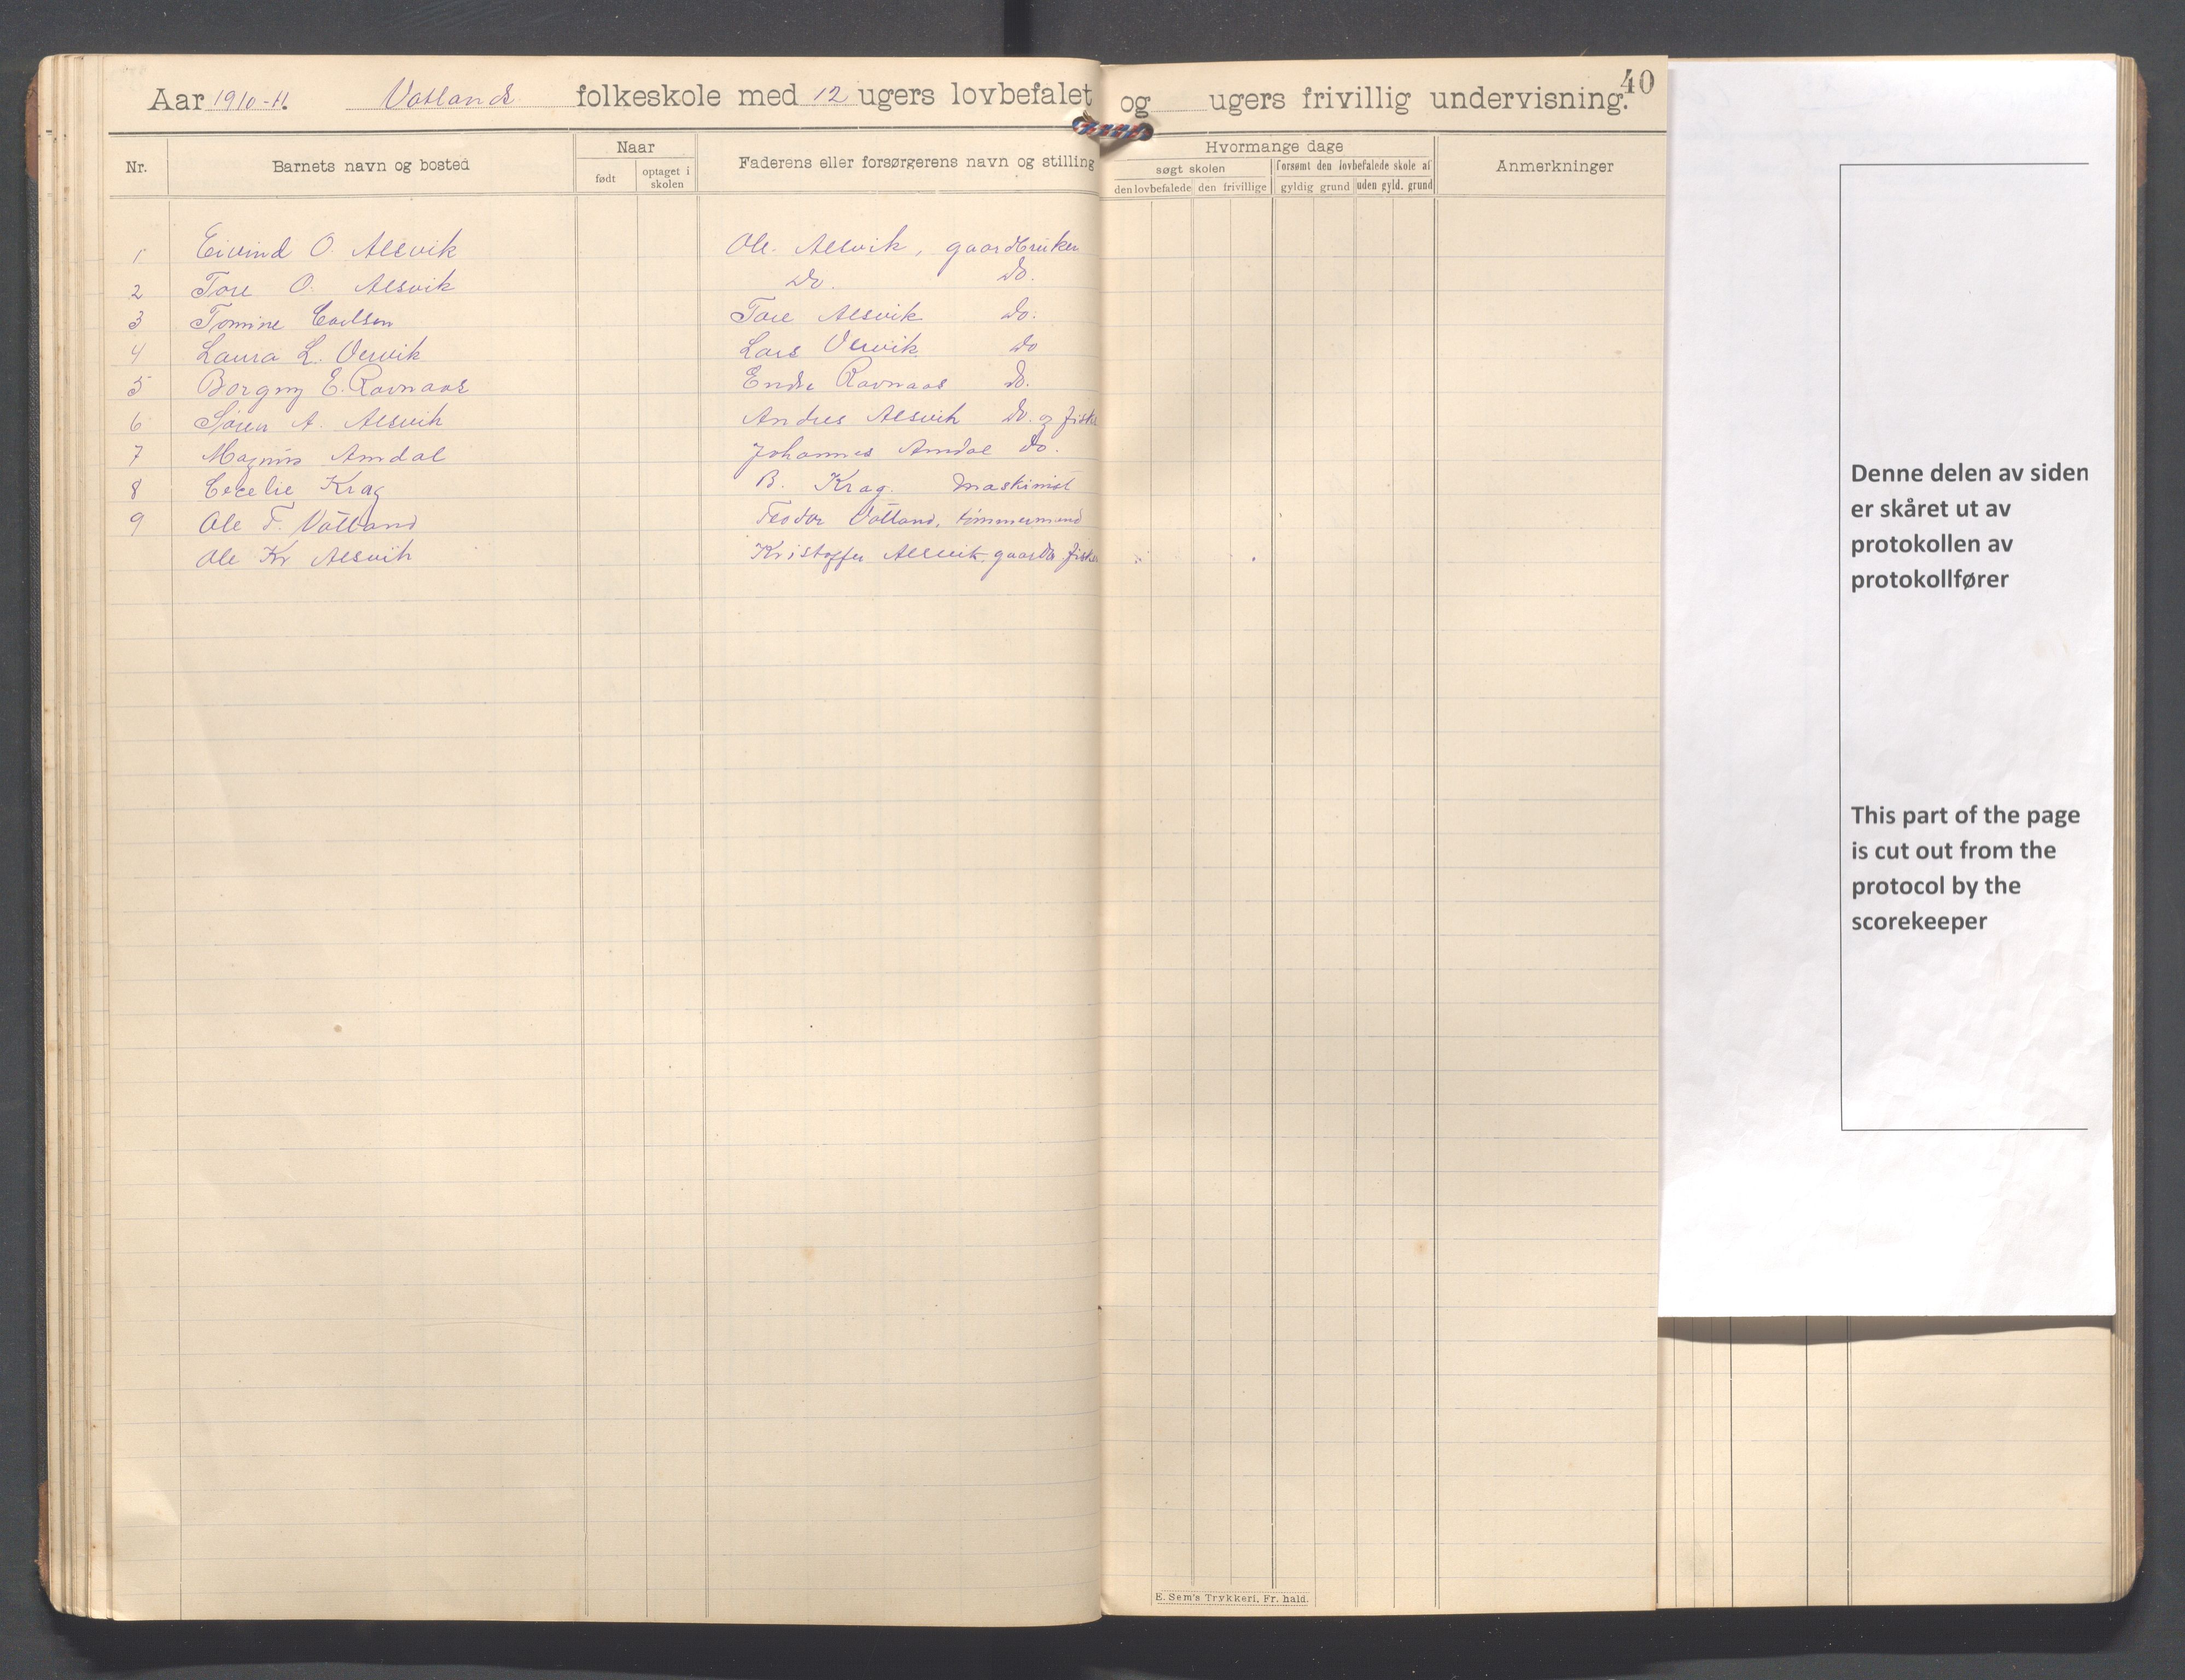 40
Aar 1910-11. Vatlands folkeskole med 12 ugers lovbefalet og ugers frivillig undervisning.
Nr. Barnets navn og bosted Naar født optaget i skolen Faderens eller forsørgerens navn og stilling Hvormange dage søgt skolen den lovbefalede den frivillige forsømt den lovbefalede skole af gyldig grund uden gyld. grund Anmerkninger
1 Eivind O. Alsvik Ole Alsvik, gaardbruker
2 Tore O. Alsvik Do. Do.
3 Tomine Carlsen Tore Alsvik Do.
4 Laura L. Vervik Lars Vervik Do
5 Borgny E. Ravnaas Endre Ravnaas Do.
6 Søren A. Alsvik Andres Alsvik Do. og fisker
7 Magnus Amdal Johannes Amdal Do.
8 Cecelie Krag B. Krag. Maskinist
9 Ole T. Vatland Teodor Vatland, tømmermand
Ole Kr Alsvik Kristoffer Alsvik, gaardb. fisker
E. Sem's Trykkeri, Fr. hald.
Denne delen av siden
er skåret ut av
protokollen av
protokollfører
This part of the page
is cut out from the
protocol by the
scorekeeper